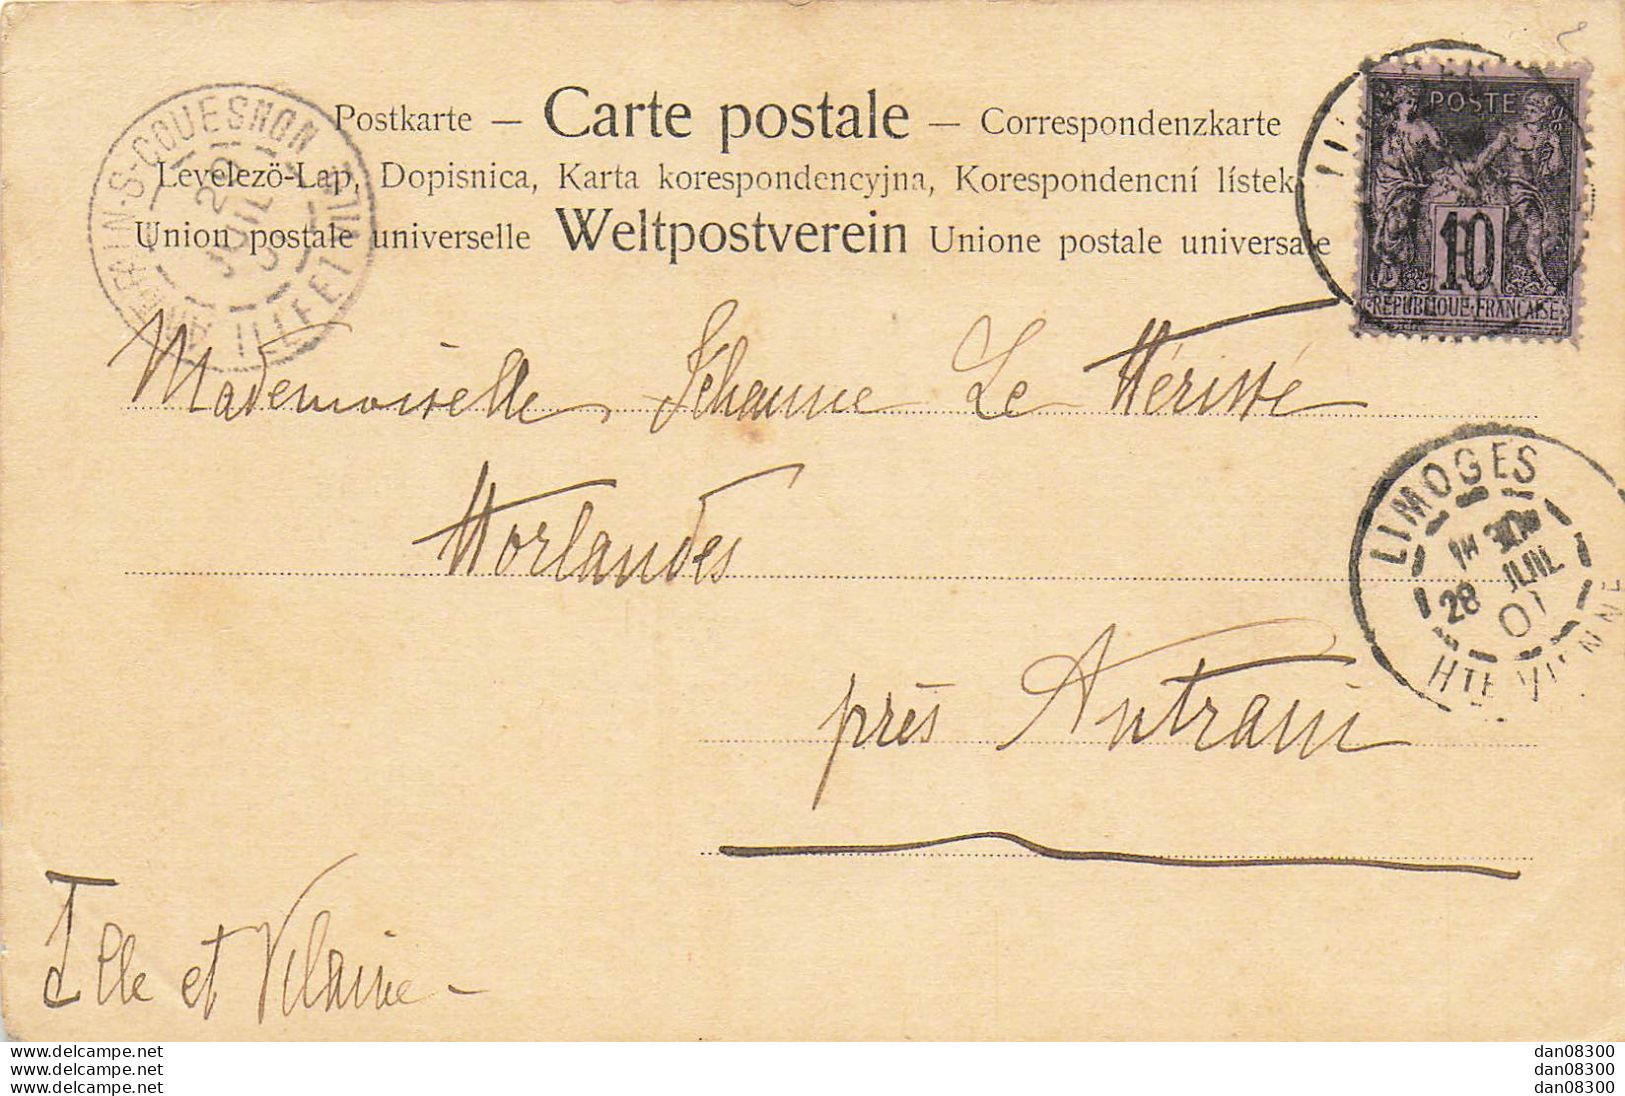 Postkarte — Carte postale — Correspondenzkarte
Levelezö-Lap, Dopisnica, Karta korespondencyjna, Korespondencní lístek
Union postale universelle Weltpostverein Unione postale universale
POSTE
10
REPUBLIQUE FRANCAISE
S-COUESNON
ILLE ET VIL
Mademoiselle Jehanne Le Hérissé
Horlandes
près Antrain
Ille et Vilaine
LIMOGES
28 JUIL
01
HTE VIENNE
www.delcampe.net
www.delcampe.net
www.delcampe.net
dan08300
dan08300
dan08300